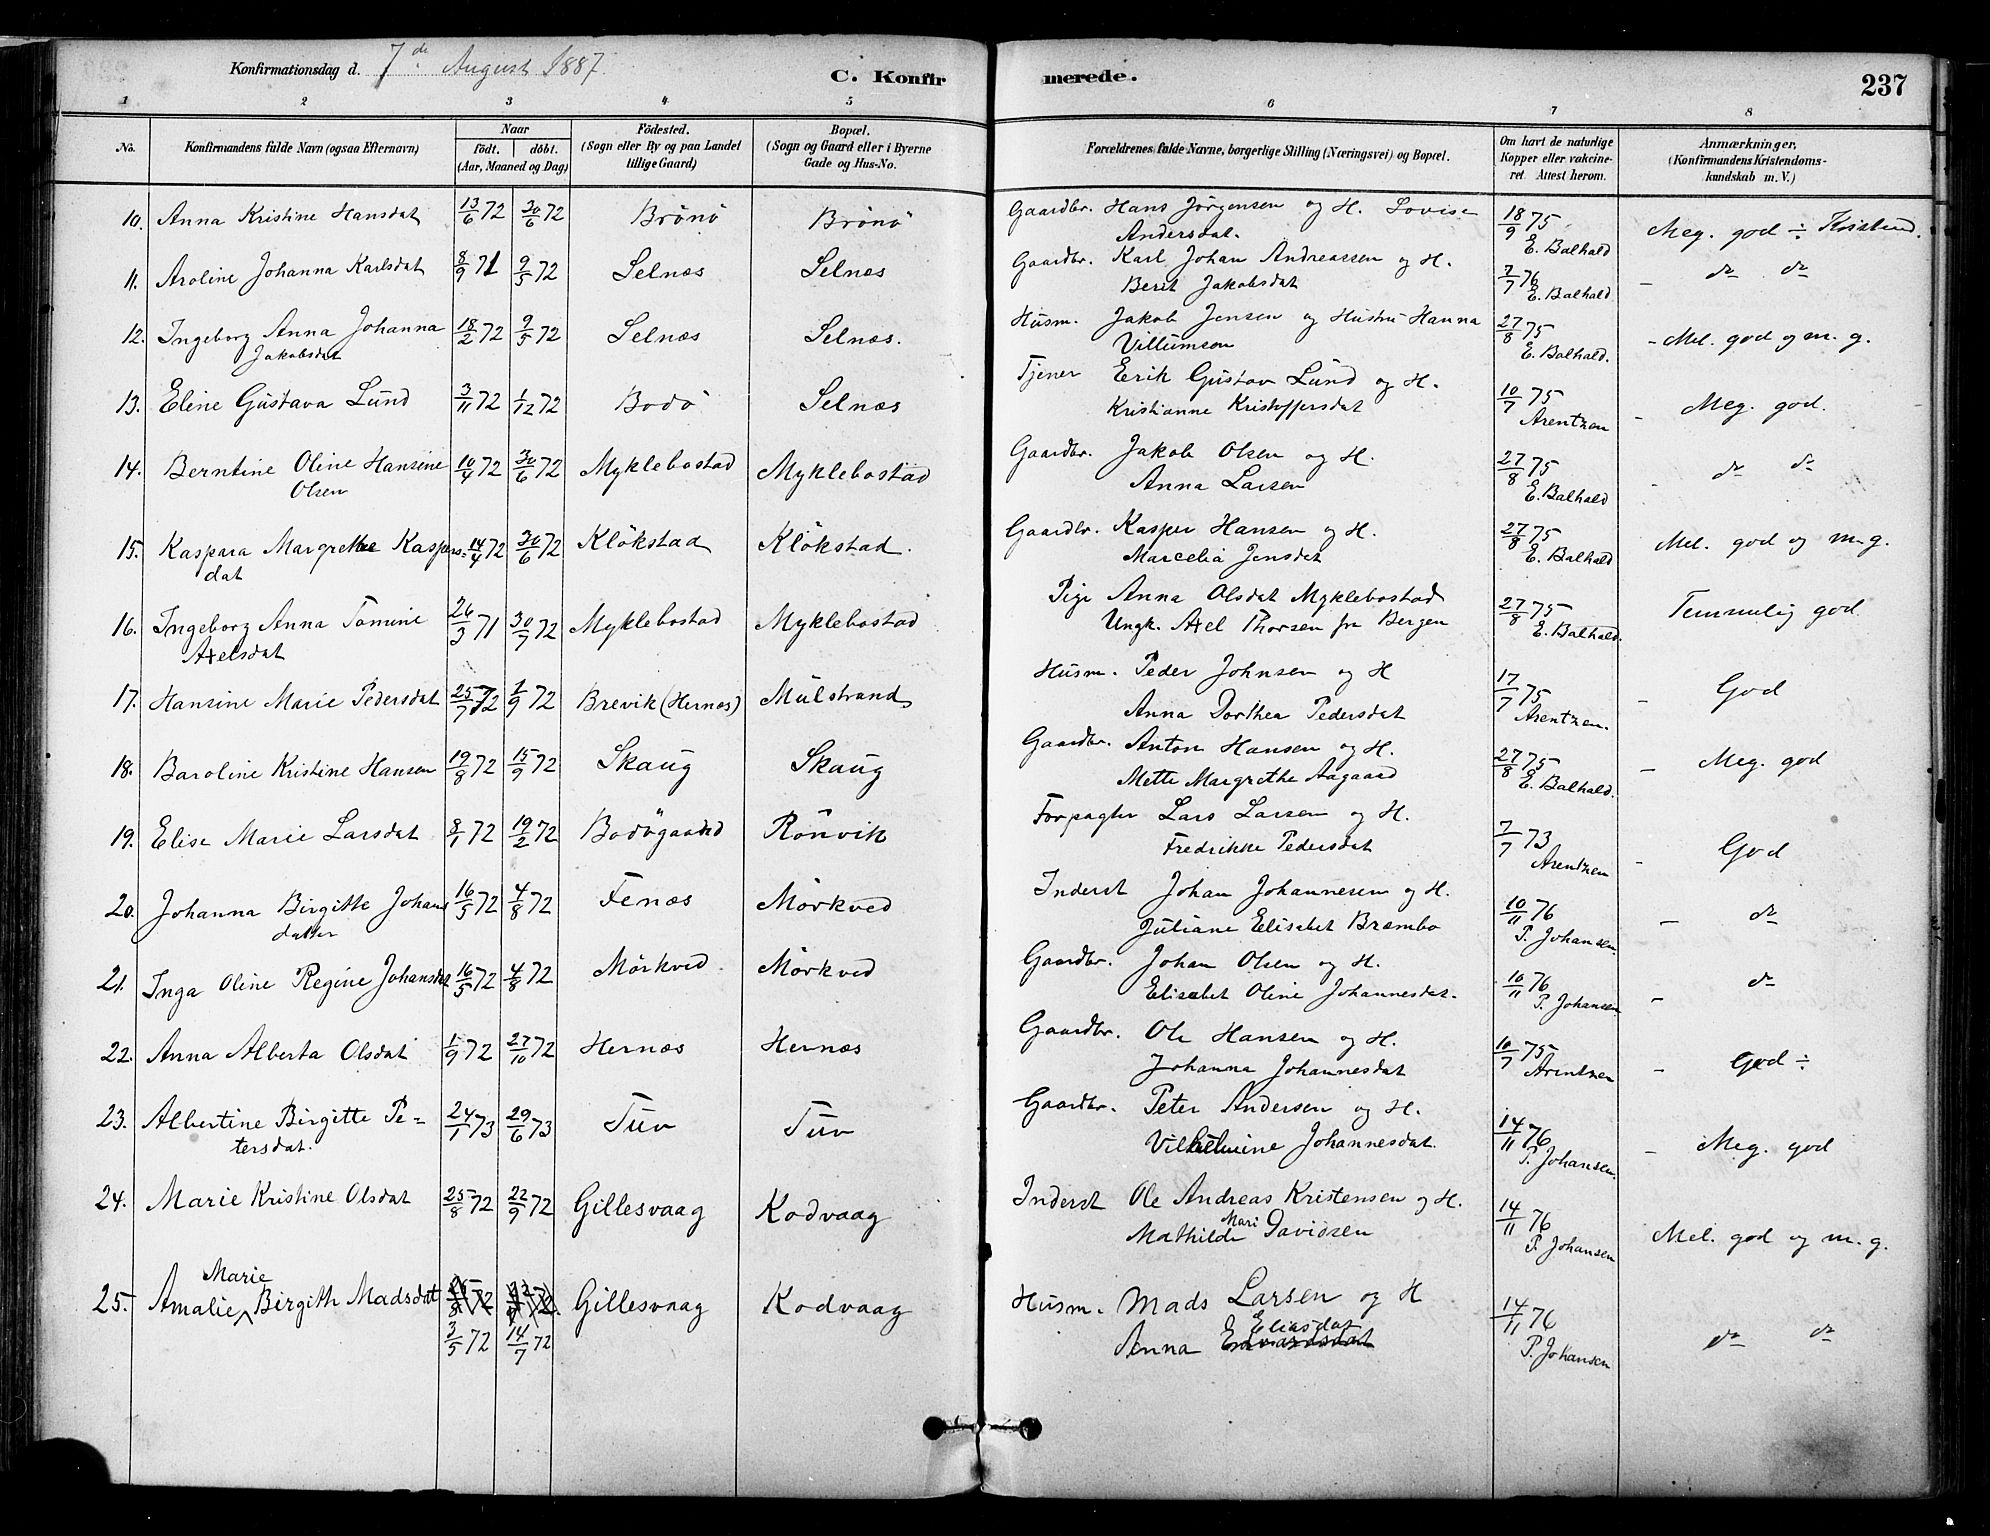 Konfirmationsdag d. 7de August 1887.
C. Konfirmerede.
237
1 2 3 4 5 6 7 8
No.
Konfirmandens fulde Navn (ogsaa Efternavn)
Naar
födt. döbt.
(Aar, Maaned og Dag)
Födested.
(Sogn eller By og paa Landet
tillige Gaard)
Bopæl.
(Sogn og Gaard eller i Byerne
Gade og Hus-No.
Forældrenes fulde Navne, borgerlige Stilling (Næringsvei) og Bopæl.
Om havt de naturlige
Kopper eller vakcine-
ret. Attest herom.
Anmærkninger,
(Konfirmandens Kristendoms-
kundskab m. V.)
10. Anna Kristine Hansdat 13/6 72 30/6 72 Brönö Brönö Gaardbr. Hans Jörgensen og H. Lovise 18/9 75 Meg. god ÷ Kristend.
Andersdat. E. Balhald
11. Aroline Johanna Karlsdat 8/9 71 9/5 72 Selnæs Selnæs Gaardbr. Karl Johan Andreassen og H. 7/7 76 – do do
Berit Jakobsdat E. Balhald
12. Ingeborg Anna Johanna 18/2 72 9/5 72 Selnæs Selnæs. Husm. Jakob Jensen og Hustru Hanna 27/8 75 – Mel. god og m. g.
Jakobsdat Villumsen E. Balhald.
13. Eline Gustava Lund 3/11 72 1/12 72 Bodö Selnæs Tjener Erik Gustav Lund og H. 10/7 75 – Meg. god.
Kristianne Kristoffersdat Arentzen
14. Berntine Oline Hansine 10/4 72 30/6 72 Myklebostad Myklebostad Gaardbr. Jakob Olsen og H. 27/8 75 – do do
Olsen Anna Larsen E. Balhald
15. Kaspara Margrethe Kaspers= 14/4 72 30/6 72 Klökstad Klökstad. Gaardbr. Kasper Hansen og H. 27/8 75 Mel. god og m. g.
dat Marcelia Jensdat E. Balhald
16. Ingeborg Anna Tomine 26/3 71 30/7 72 Myklebostad Myklebostad Pige Anna Olsdat Myklebostad 27/8 75 Temmelig god
Axelsdat Ungk. Axel Thorsen fra Bergen E. Balhald.
17. Hansine Marie Pedersdat 25/7 72 1/9 72 Brevik (Hernæs) Mulstrand Husm. Peder Johnsen og H 17/7 75 – God
Anna Dorthea Pedersdat Arentzen.
18. Baroline Kristine Hansen 19/8 72 15/9 72 Skaug Skaug Gaardbr. Anton Hansen og H. 27/8 75 – Meg. god
Mette Margrethe Aagaard E. Balhald.
19. Elise Marie Larsdat 8/1 72 19/2 72 Bodögaard Rönvik Forpagter Lars Larsen og H. 7/7 73 – God
Fredrikke Pedersdat Arentzen
20. Johanna Birgitte Johans 16/5 72 4/8 72 Fenæs Mörkved Inderst Johan Johannesen og H. 10/11 76 – do
datter Juliane Elisabet Bræmbo P. Johansen.
21. Inga Oline Regine Johansdat 16/5 72 4/8 72 Mörkved. Mörkved Gaardbr. Johan Olsen og H. 10/11 76 – do
Elisabet Oline Johannesdat. P. Johansen.
22. Anna Alberta Olsdat 1/9 72 27/10 72 Hernæs Hernæs Gaardbr. Ole Hansen og H. 10/7 75 – God ÷
Johanna Johannesdat Arentzen
23. Albertine Birgitte Pe= 24/1 73 29/6 73 Tuv Tuv Gaardbr. Peter Andersen og H. 14/11 76 – Meg. god
tersdat. Vilhelmine Johannesdat. P. Johansen.
24. Marie Kristine Olsdat 25/8 72 22/9 72 Gillesvaag Kodvaag Inderst Ole Andreas Kristensen og H. 14/11 76 Mel. god og m. g.
Mathilde Mari Davidsen P. Johansen
25. Amalie Marie Birgith Madsdat 25/8 72 22/9 72. Gillesvaag Kodvaag Husm. Mads Larsen og H 14/11 76 do do
3/5 72 14/7 72 Anna Edvardsdat Eliasdat P. Johansen